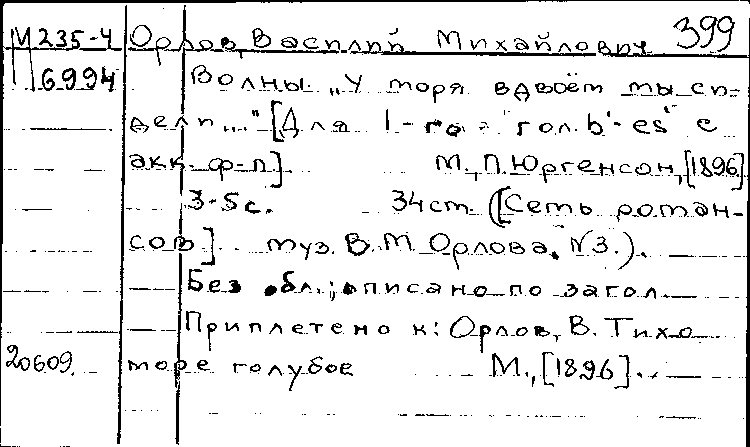 399
М235-4 Орлов, Василий Михайлович
6994 Волны „У моря вдвоём мы си-
дели..." [Для 1-го гол. b'-es'' с
акк. ф-п] М., П. Юргенсон, [1896]
3-5 с. 34 ст. ([Семь роман-
сов] муз. В. М. Орлова. №3.).
Без обл.; описано по загол.
Приплетено к: Орлов, В. Тихо
20609. море голубое М., [1896].